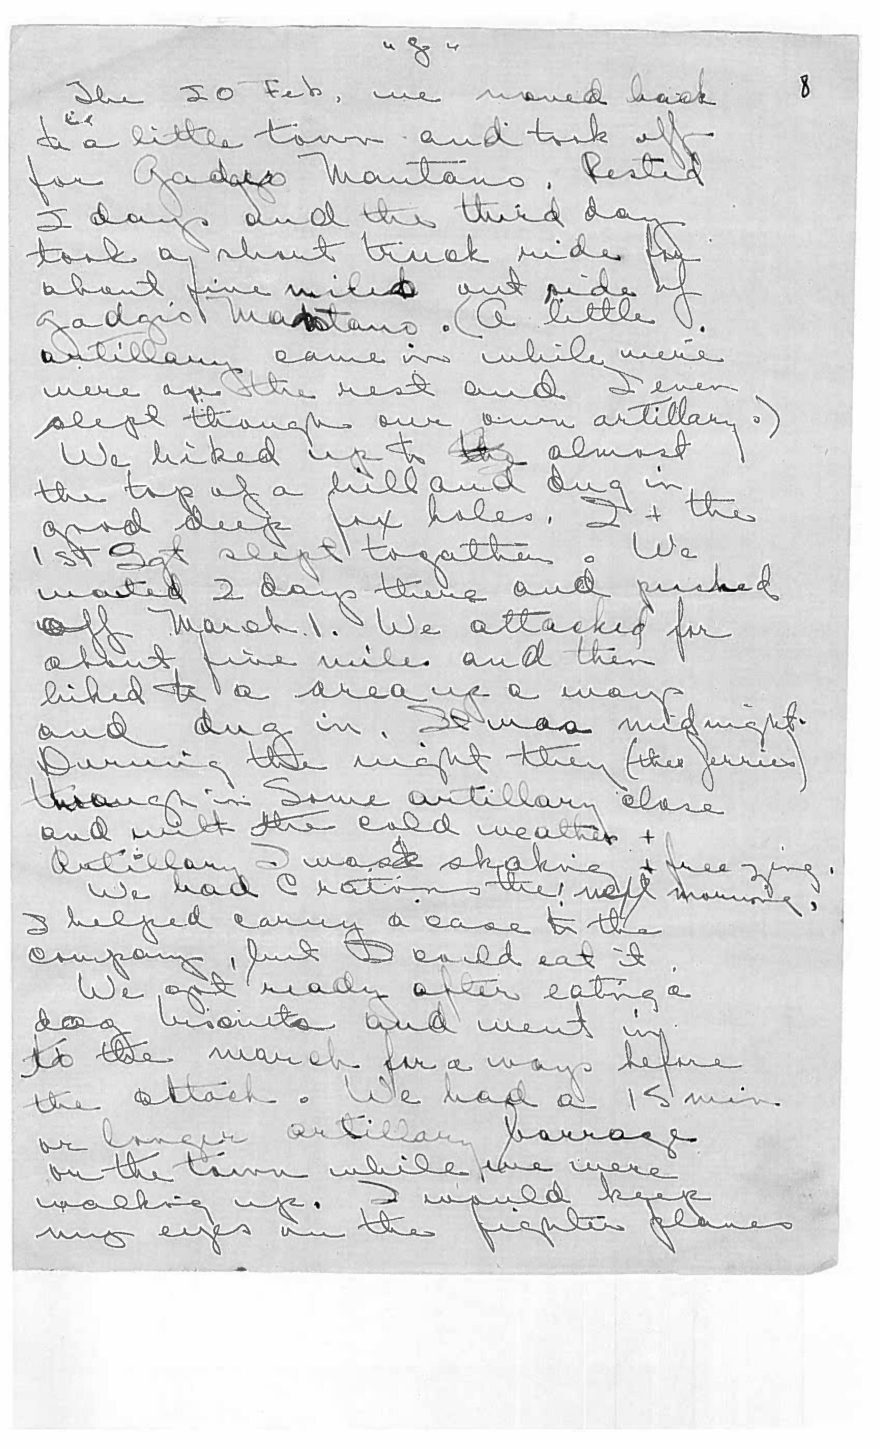 "8"
8
The 20 Feb, we moved back
to a little town and took off
for Gadgio Mantano. Rested
2 days and the third day
took a short truck ride for
about five miles out side of
Gadgio Mantano. (A little
artillary came in while we're
were on the rest and I even
slept though our own artillary.)
We hiked up to almost
the top of a hill and dug in
good deep fox holes. I + the
1st Sgt slept togather. We
waited 2 days there and pushed
off March 1. We attacked for
about five miles and then
hiked to a area up a ways
and dug in. It was midnight.
Durning the night they (the Jerries)
though in some artillary close
and with the cold weather +
Artillary I was shaking + freezing.
We had C rations the next morning.
I helped carry a case to the
company, but I could eat it.
We got ready after eating a
dog bisouits and went in
to the march for a ways before
the attack. We had a 15 min.
or longer artillary barrage
on the town while we were
walking up. I would keep
my eyes on the fighter planes